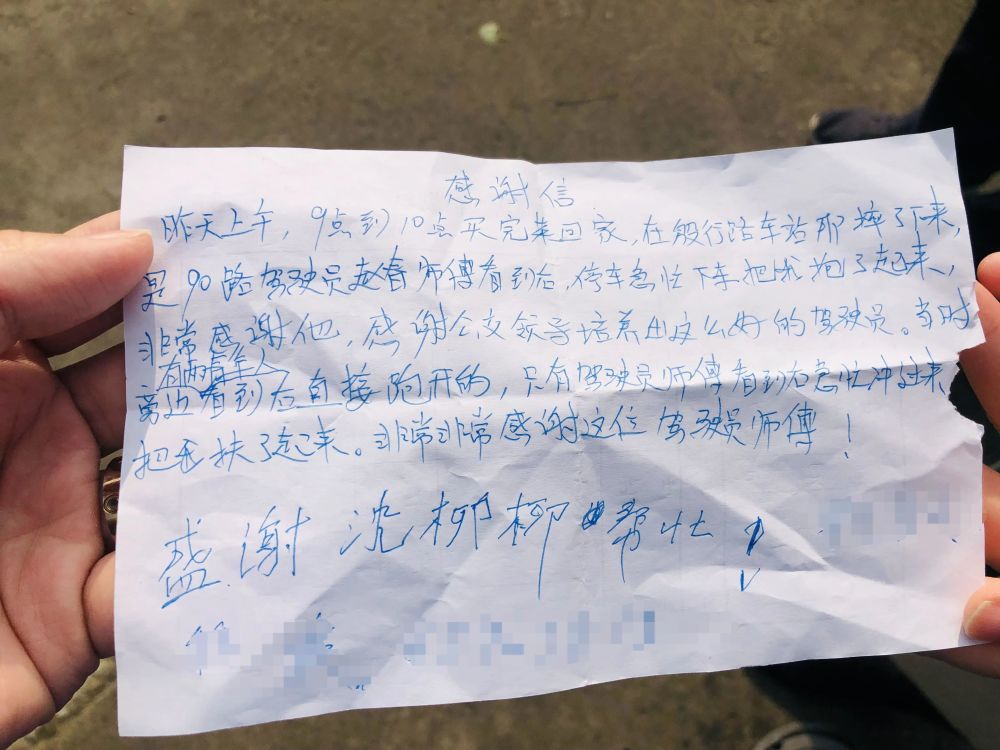 感谢信
昨天上午，9点到10点买完菜回家，在殷行路车站那摔了下来，
是90路驾驶员赵春师傅看到后，停车急忙下车把我抱了起来，
非常感谢他，感谢公交领导培养出这么好的驾驶员。当时
有两青年人
旁边看到后直接跑开的，只有驾驶员师傅看到后急忙冲过来
把我扶了起来。非常非常感谢这位驾驶员师傅！
盛谢沈柳柳帮忙！